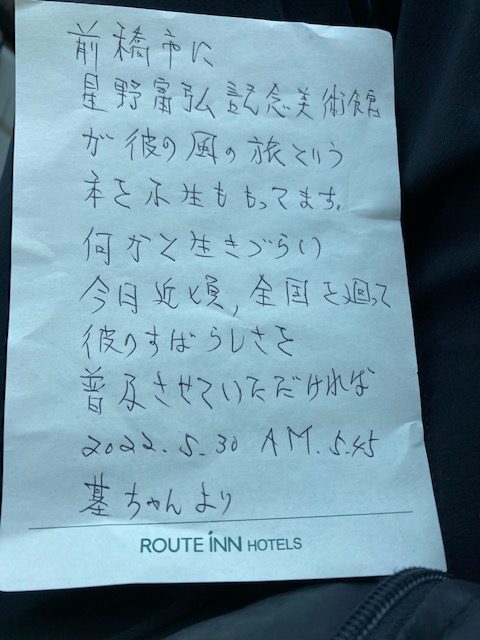 前橋市に
星野富弘記念美術館
が彼の風の旅という
本を小生ももってます。
何かと生きづらい
今日近頃,全国を廻って
彼のすばらしさを
普及させていただければ
2022.5.30 AM.5.45
基ちゃんより
ROUTE INN HOTELS